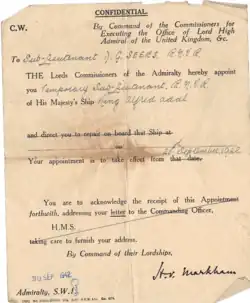 CONFIDENTIAL.
C.W.
By Command of the Commissioners for
Executing the Office of Lord High
Admiral of the United Kingdom, &c.
To Sub-Lieutenant
THE Lords Commissioners of the Admiralty hereby appoint
you Temporary Sub-Lieutenant, R.N.V.R
of His Majesty's Ship King Alfred addl
and direct you to repair on board that Ship at
on
Your appointment is to take effect from that date.
You are to acknowledge the receipt of this Appointment
forthwith, addressing your letter to the Commanding Officer,
H.M.S.
taking care to furnish your address.
By Command of their Lordships,
H.V. Markham
Admiralty, S.W.1